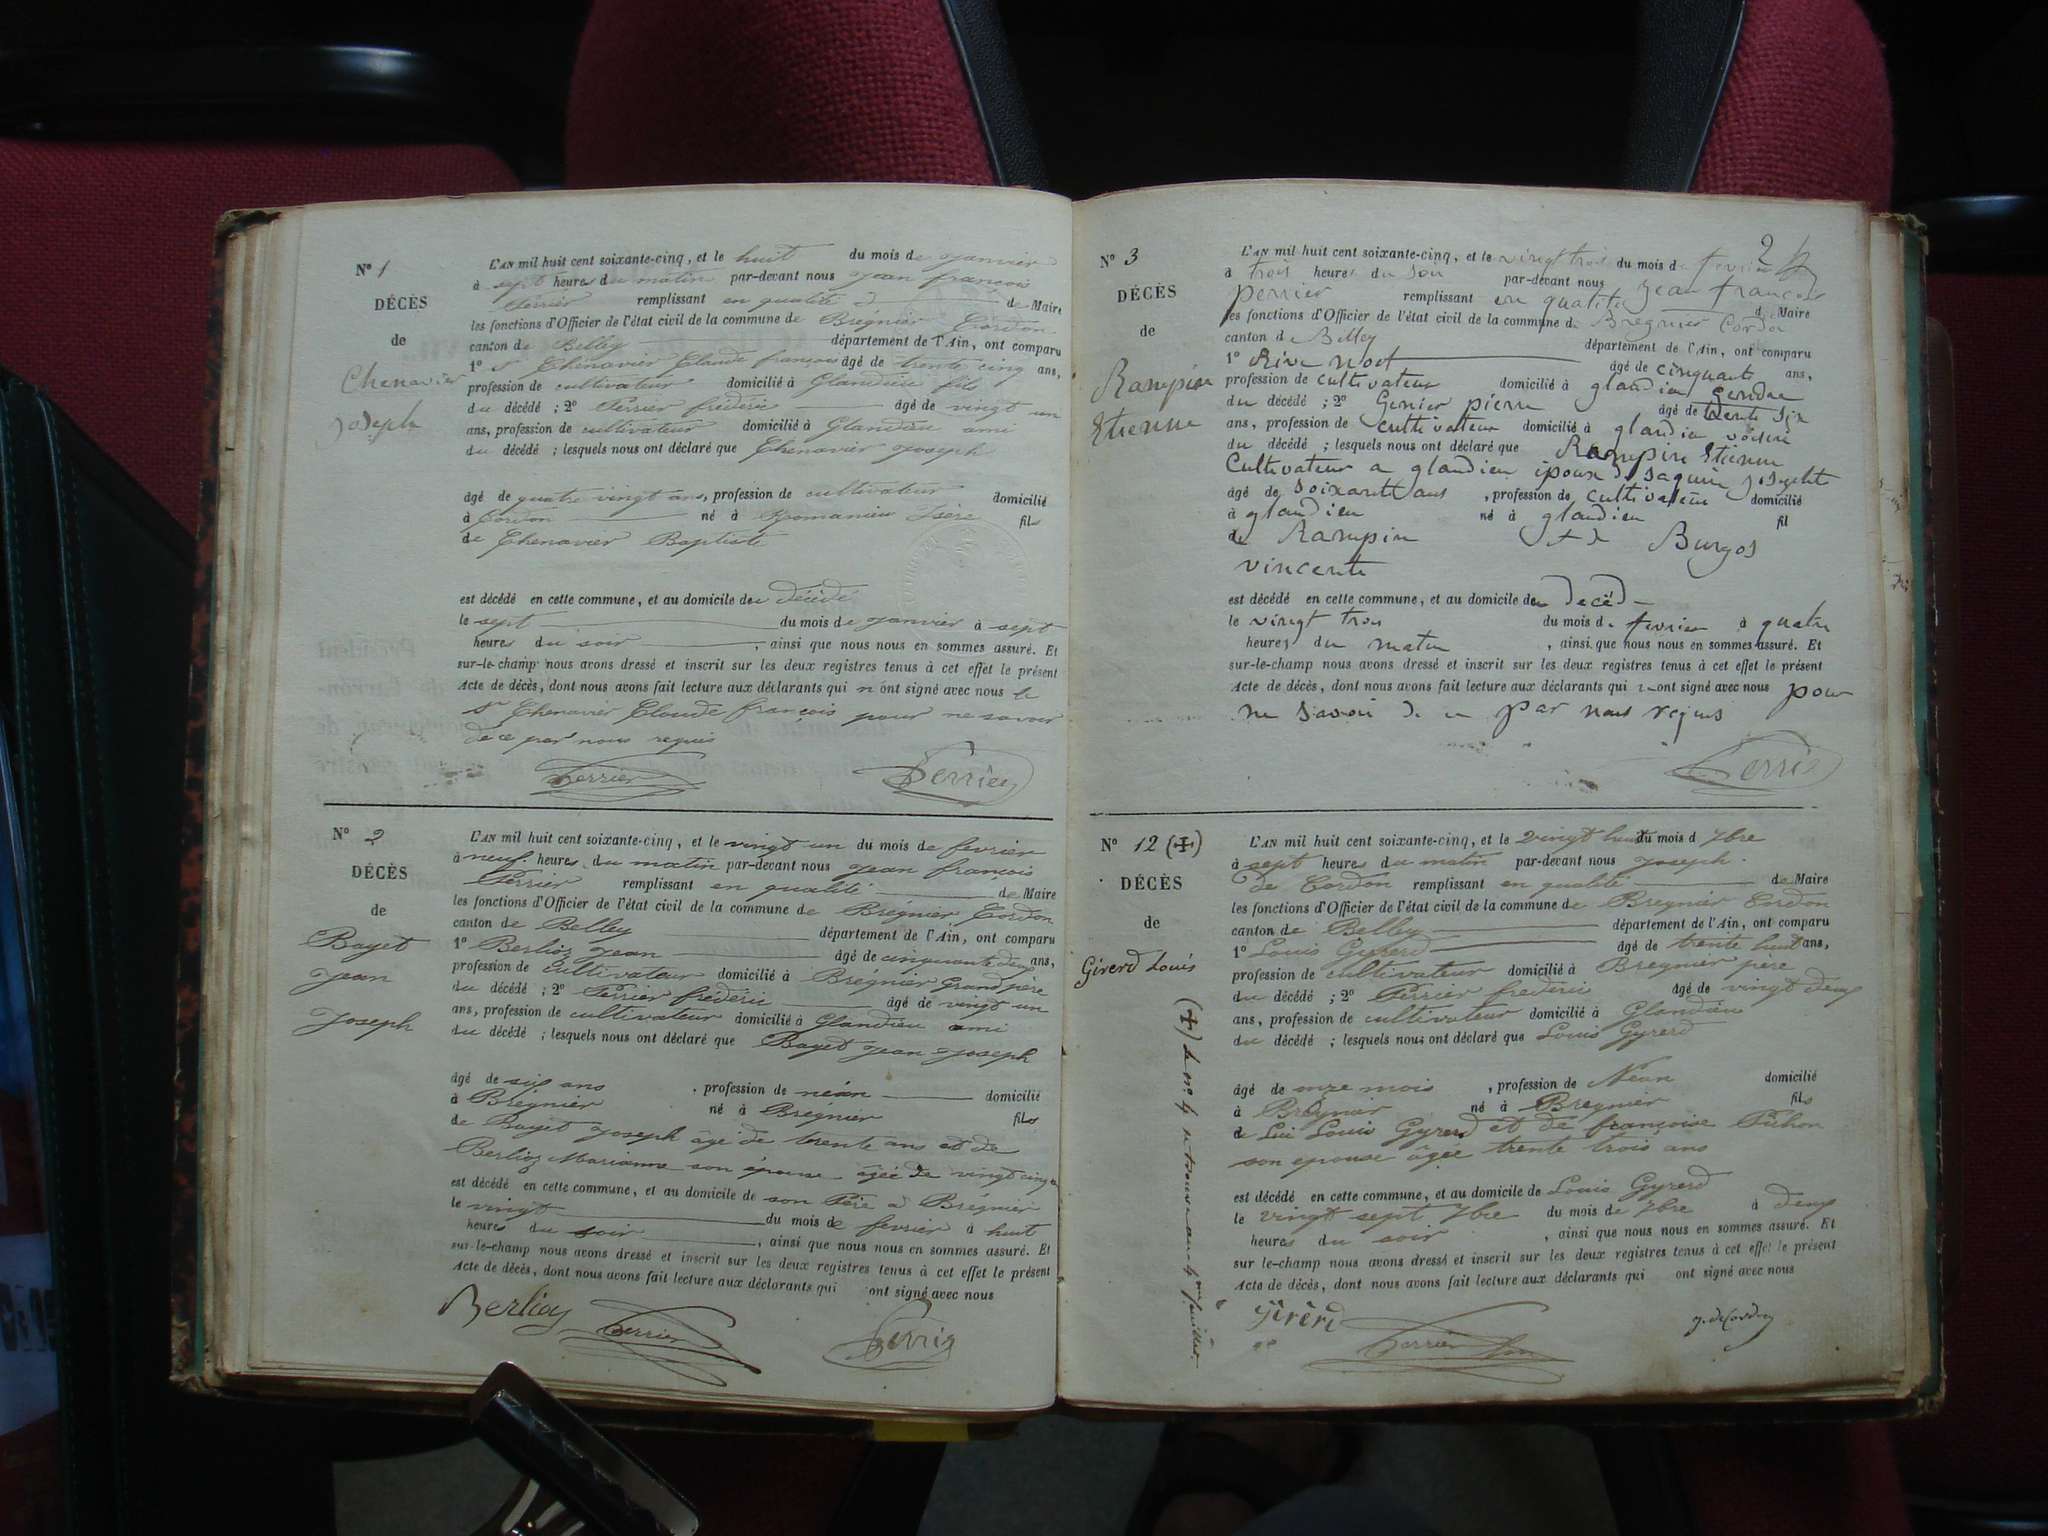 N° 1
DÉCÈS
de
Chenavier
Joseph
L'AN mil huit cent soixante-cinq, et le huit du mois de Janvier
à sept heures du matin par-devant nous Jean françois
Perrier remplissant en qualité d de Maire
les fonctions d'Officier de l'état civil de la commune de Brégnier Cordon
canton de Belley département de l'Ain, ont comparu
1° Sr Chenavier Claude françois âgé de trente cinq ans,
profession de cultivateur domicilié à Glandieu fils
du décédé ; 2° Perrier frédéric âgé de vingt un
ans, profession de cultivateur domicilié à Glandieu ami
du décédé ; lesquels nous ont déclaré que Chenavier Joseph
âgé de quatre vingt ans, profession de cultivateur domicilié
à Cordon né à Romanieu Isère fils
de Chenavier Baptiste
est décédé en cette commune, et au domicile de décédé
le sept du mois de Janvier à sept
heures du soir , ainsi que nous nous en sommes assuré. Et
sur-le-champ nous avons dressé et inscrit sur les deux registres tenus à cet effet le présent
Acte de décès, dont nous avons fait lecture aux déclarants qui n'ont signé avec nous le
Sr Chenavier Claude françois pour ne savoir
de ce par nous requis
Perrier Perrier
N° 2
DÉCÈS
de
Bayet
Jean
Joseph
L'AN mil huit cent soixante-cinq, et le vingt un du mois de fevrier
à neuf heures du matin par-devant nous Jean françois
Perrier remplissant en qualité de Maire
les fonctions d'Officier de l'état civil de la commune de Brégnier Cordon
canton de Belley département de l'Ain, ont comparu
1° Berlioz Jean âgé de cinquante deux ans,
profession de cultivateur domicilié à Brégnier Grand père
du décédé ; 2° Perrier frédéric âgé de vingt un
ans, profession de cultivateur domicilié à Glandieu ami
du décédé ; lesquels nous ont déclaré que Bayet Jean Joseph
âgé de six ans , profession de néan domicilié
à Brégnier né à Brégnier fils
de Bayet Joseph âgé de trente ans et de
Berlioz Marianne son épouse âgée de vingt cinq
est décédé en cette commune, et au domicile de son Père à Brégnier
le vingt du mois de fevrier à huit
heures du soir , ainsi que nous nous en sommes assuré. Et
sur-le-champ nous avons dressé et inscrit sur les deux registres tenus à cet effet le présent
Acte de décès, dont nous avons fait lecture aux déclarants qui ont signé avec nous
Berlioz Perrier Perrier
2
N° 3
DÉCÈS
de
Rampin
Etienne
L'AN mil huit cent soixante-cinq, et le vingt trois du mois de fevrier
à trois heures du soir par-devant nous Jean françois
perrier remplissant en qualité d Maire
les fonctions d'Officier de l'état civil de la commune de Bregnier Cordon
canton de Belley département de l'Ain, ont comparu
1° Rive âgé de cinquante ans,
profession de cultivateur domicilié à glandieu Gendre
du décédé ; 2° Genier pierre âgé de trente six
ans, profession de cultivateur domicilié à glandieu voisin
du décédé ; lesquels nous ont déclaré que Rampin Etienne
Cultivateur a glandieu époux d
âgé de soixante ans , profession de cultivateur domicilié
à glandieu né à glandieu fil
de Rampin et de Burgos
vincente
est décédé en cette commune, et au domicile du decéd
le vingt trois du mois de fevrier à quatre
heures du matin , ainsi que nous nous en sommes assuré. Et
sur-le-champ nous avons dressé et inscrit sur les deux registres tenus à cet effet le présent
Acte de décès, dont nous avons fait lecture aux déclarants qui n'ont signé avec nous pour
ne savoir de ce par nous requis
Perrier
N° 12 (+)
DÉCÈS
de
Girerd Louis
(+) Le n° 4 se trouve au 4me feuillet.
L'AN mil huit cent soixante-cinq, et le vingt huit du mois d 7bre
à sept heures du matin par-devant nous Joseph
de Cordon remplissant en qualité de Maire
les fonctions d'Officier de l'état civil de la commune de Bregnier Cordon
canton de Belley département de l'Ain, ont comparu
1° Louis Gyrerd âgé de trente huit ans,
profession de cultivateur domicilié à Bregnier père
du décédé ; 2° Perrier frederic âgé de vingt deux
ans, profession de cultivateur domicilié à Glandieu
du décédé ; lesquels nous ont déclaré que Louis Gyrerd
âgé de onze mois , profession de Néan domicilié
à Brégnier né à Bregnier fils
de Lui Louis Gyrerd et de françoise Pichon
son epouse âgée trente trois ans
est décédé en cette commune, et au domicile de Louis Gyrerd
le vingt sept 7bre du mois de 7bre à deux
heures du soir , ainsi que nous nous en sommes assuré. Et
sur le-champ nous avons dressé et inscrit sur les deux registres tenus à cet effet le présent
Acte de décès, dont nous avons fait lecture aux déclarants qui ont signé avec nous
Girerd Perrier J. de Cordon